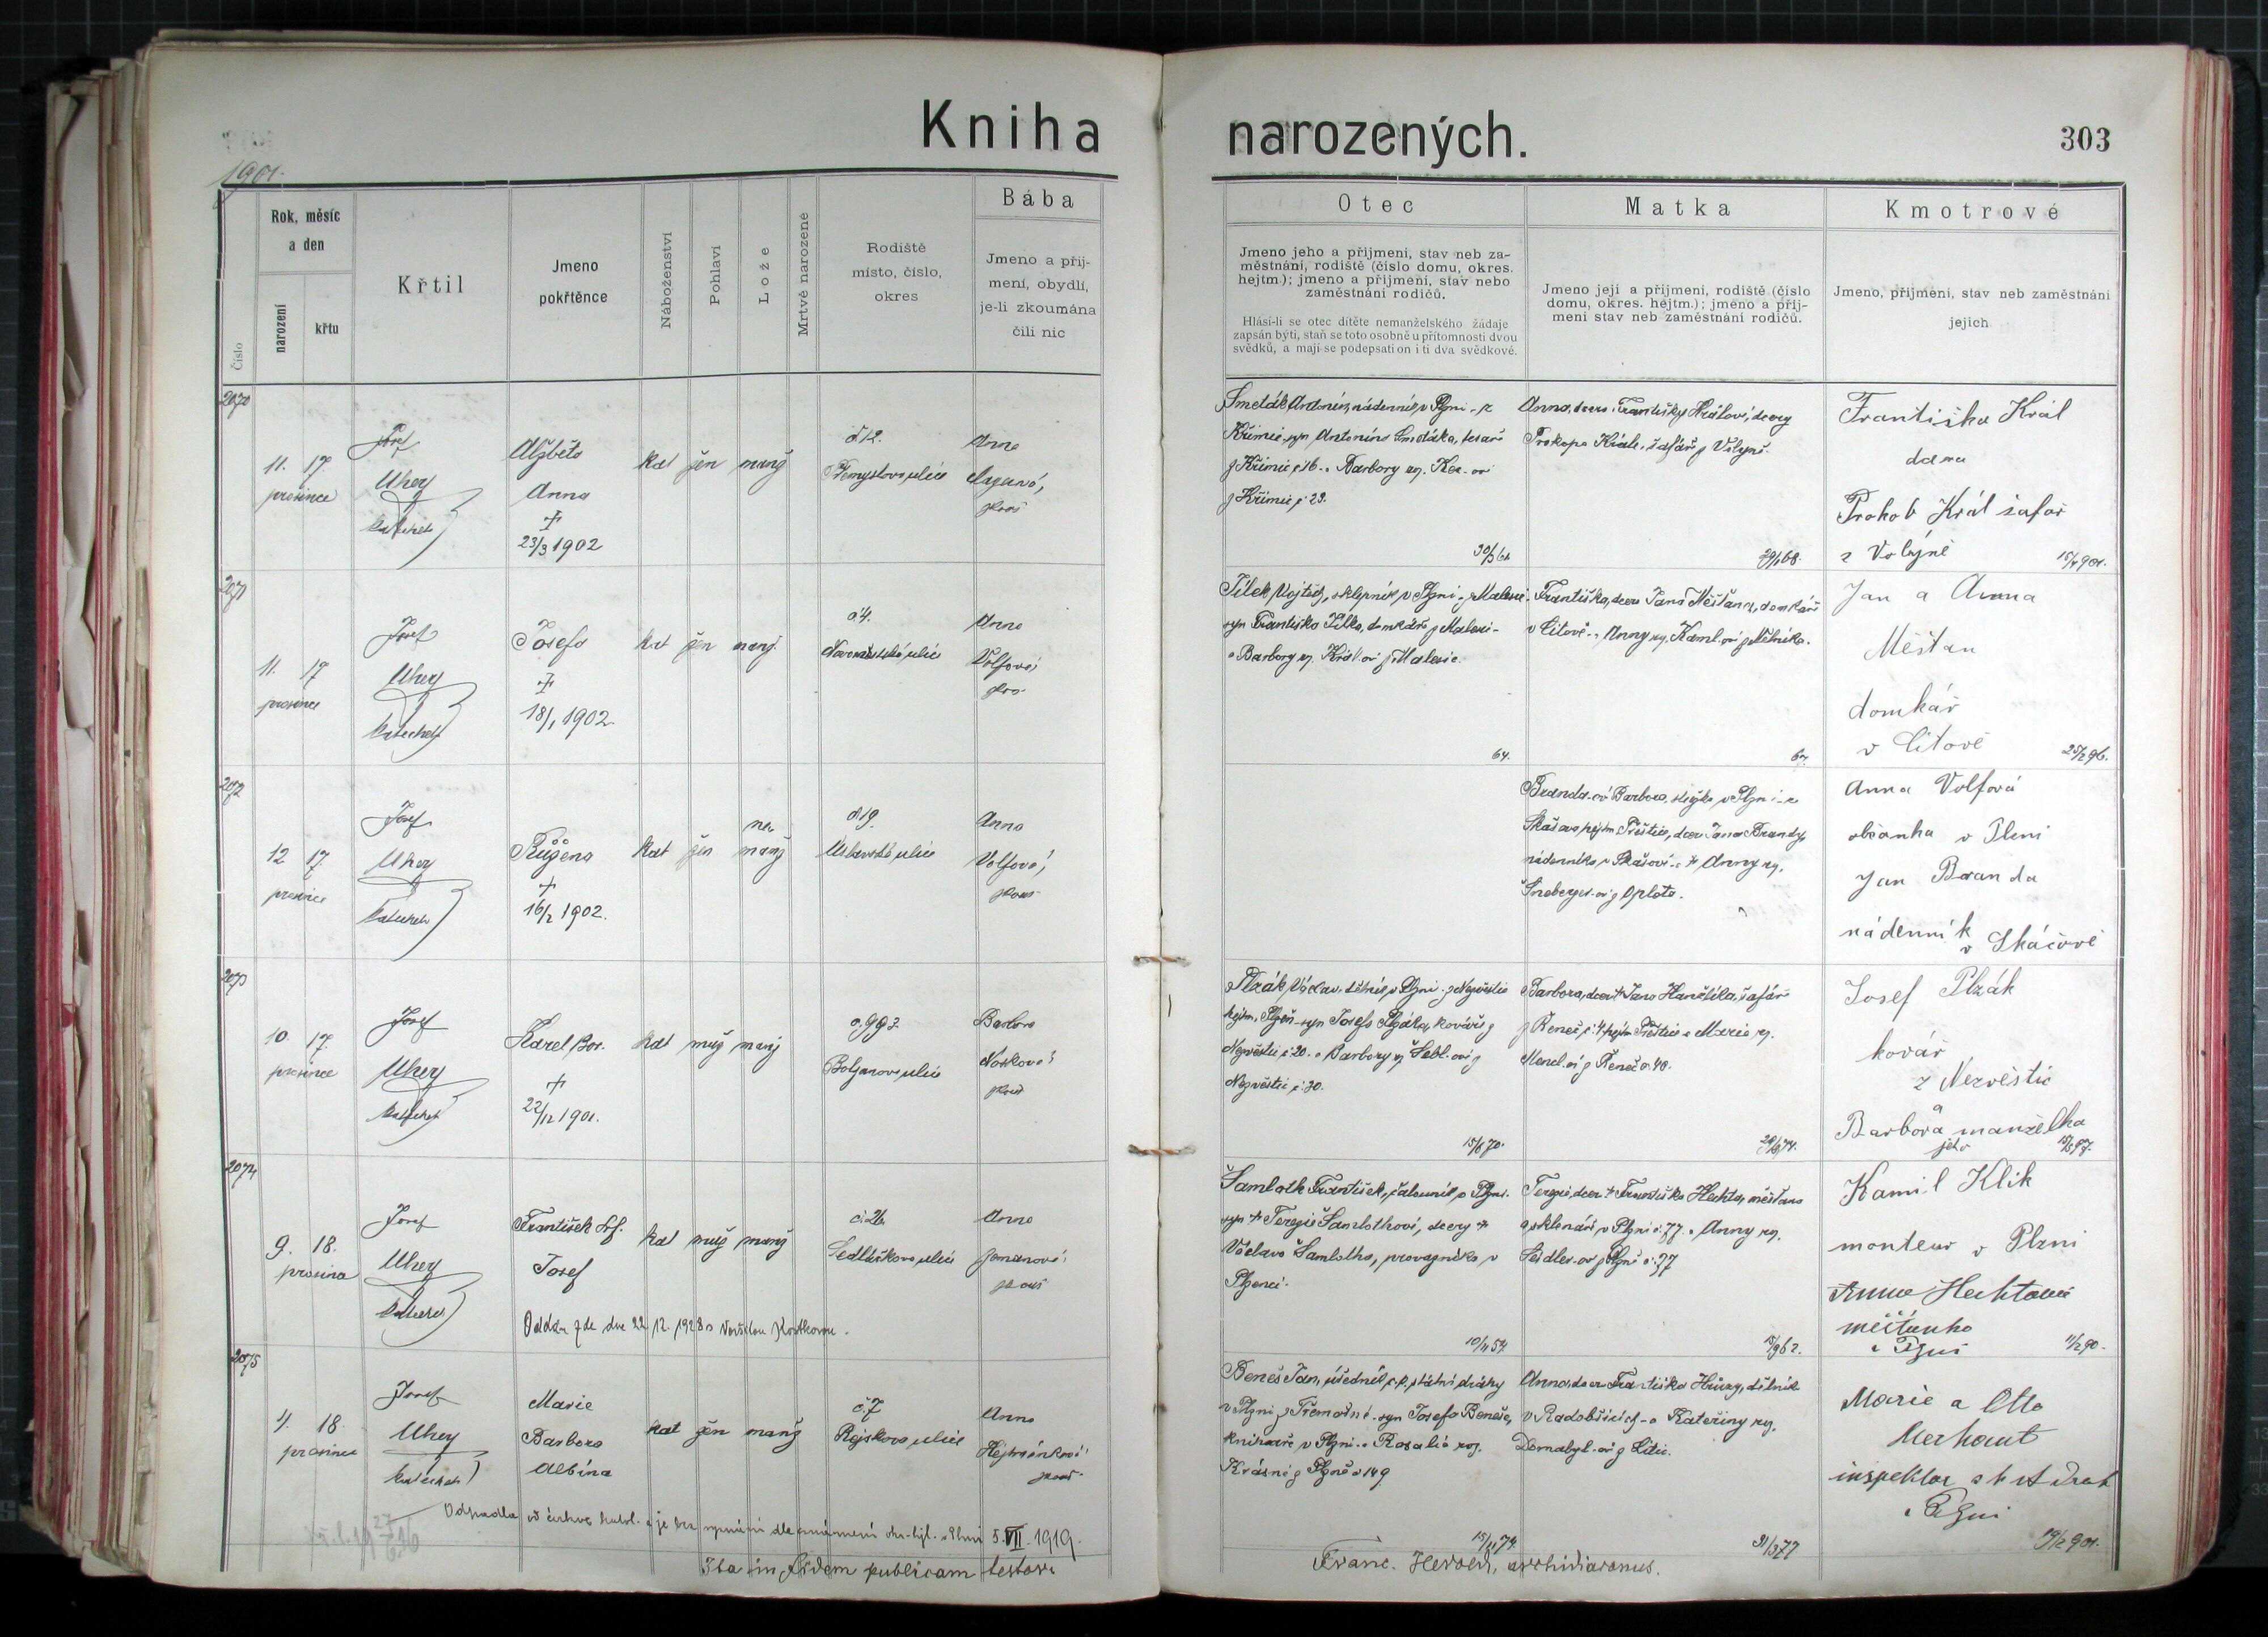 Kniha narozených.
303
1901.
Číslo
Rok, měsíc
a den
narození
křtu
Křtil
Jmeno
pokřtěnce
Náboženství
Pohlaví
Lože
Mrtvě narozené
Rodiště
místo, číslo,
okres
Bába
Jmeno a příj-
mení, obydlí,
je-li zkoumána
čili nic
Otec
Jmeno jeho a příjmení, stav neb za-
městnání, rodiště (číslo domu, okres.
hejtm.); jmeno a příjmení, stav nebo
zaměstnání rodičů.
Hlásí-li se otec dítěte nemanželského žádaje
zapsán býti, staň se toto osobně u přítomnosti dvou
svědků, a mají se podepsati on i ti dva svědkové.
Matka
Jmeno její a příjmení, rodiště (číslo
domu, okres. hejtm.); jmeno a příj-
mení stav neb zaměstnání rodičů.
Kmotrové
Jmeno, příjmení, stav neb zaměstnání
jejich
2070
11. 17.
prosince
Josef
Uhey
katecheta
Alžběta
Anna
+
23/3 1902
kat žen manž
č 12.
Přemyslova ulice
Anna
zkouš
Smeták Antonín, nádenník v Plzni - z
Křimic, syn Antonína Smetáka, tesaře
z Křimic č 16. a Barbory roz.
z Křimic č 29.
Anna, dcera Františky Králové, dcery
Prokopa Krále, šafáře z Volyně.
29/1 68.
Františka Král
dcera
Prokob Král šafář
z Volyně
2071
11. 17
prosince
Josef
Uhey
katecheta
Josefa
+
18/1 1902.
kat žen manž.
č 4.
Novoměstská ulice
Anna
Volfová
zkou
Jílek Vojtěch, sklepník v Plzni - z Malesic.
syn Františka Jílka, domkáře z Malesic -
a Barbory roz. Král.ové z Malesic.
64.
Františka, dcera Jana Měšťana, domkáře
v Citově a Anny roz. z Mělníka.
67.
Jan a Anna
Měšťan
domkář
v Citově
25/2 96.
2072
12 17.
prosince
Josef
Uhey
katecheta
Růžena
+
16/2 1902.
kat žen
ne.
manž
č 19.
Úslavská ulice
Anna
Volfová,
zkouš
Branda.ová Barbora, služka v Plzni - z
Skašova hejtm Přeštice, dcera Jana Brandy,
nádenníka v Skašově - a + Anny roz.
Šneberger.ové z Oplota.
Anna Volfová
občanka v Plzni
Jan Branda
nádenník
v Skašově
2073
10. 17.
prosince
Josef
Uhey
katecheta
Karel Bor.
+
22/12 1901.
kat muž manž
č 993.
Bolzanova ulice
Barbora
Nosková
zkouš
Plzák Václav, dělník v Plzni - z Nezvěstic
hejtm. Plzeň - syn Josefa Plzáka, kováře z
Nezvěstic č 20. a Barbory roz Šebl.ové z
Nezvěstic č 30.
15/8 70.
Barbora, dcera + Jana Hanzlíka, šafáře
z Řeneč č. 4 hejtm Přeštice a Marie roz.
Mencl.ové z Řeneč č 40.
Josef Plzák
kovář
z Nezvěstic
a
Barbora manželka
jeho
2074
9. 18.
prosince
Josef
Uhey
katecheta
František Srf.
Josef
kat muž manž
č. 26
Sedláčkova ulice
Anna
Zemanová
zkouš
Oddán zde dne 22/12. 1928 s Voršilou Kostkovou.
Šamloth František, čalouník v Plzni.
syn + Terezie Šamlothové, dcery +
Václava Šamlotha, provazníka v
Plzni.
10/11 54
Terezie, dcera + Františka Hechta, měšťana
a sklenáře v Plzni č. 77. a Anny roz.
Seidler.ové z Plzně č. 77
Kamil Klik
monteur v Plzni
Anna Hechtová
měšťanka
v Plzni
11/2 90.
2075
4. 18.
prosince
Josef
Uhey
katecheta
Marie
Barbora
Albína
kat žen manž
č. 7
Rejskova ulice
Anna
Hejtmánková
zkouš.
Beneš Jan, úředník c. k. státní dráhy
v Plzni, z Třemošné - syn Josefa Beneše,
knihaře v Plzni - a Rosalie roz.
Krásné z Plzně č 149
15/11 74.
Anna, dcera Františka Hrůzy, dělník
v Radobčicích - a Kateřiny roz.
z Litic.
31/3 77
Marie a Otto
Merhaut
inspektor c k st drah
v Plzni
19/12 901.
Odpadla od církve katol. a je bez vyznání dle oznámení v Plzni 5. VII. 1919.
Ita in fidem publicam testor:
Franc. Herold, archidiaconus.